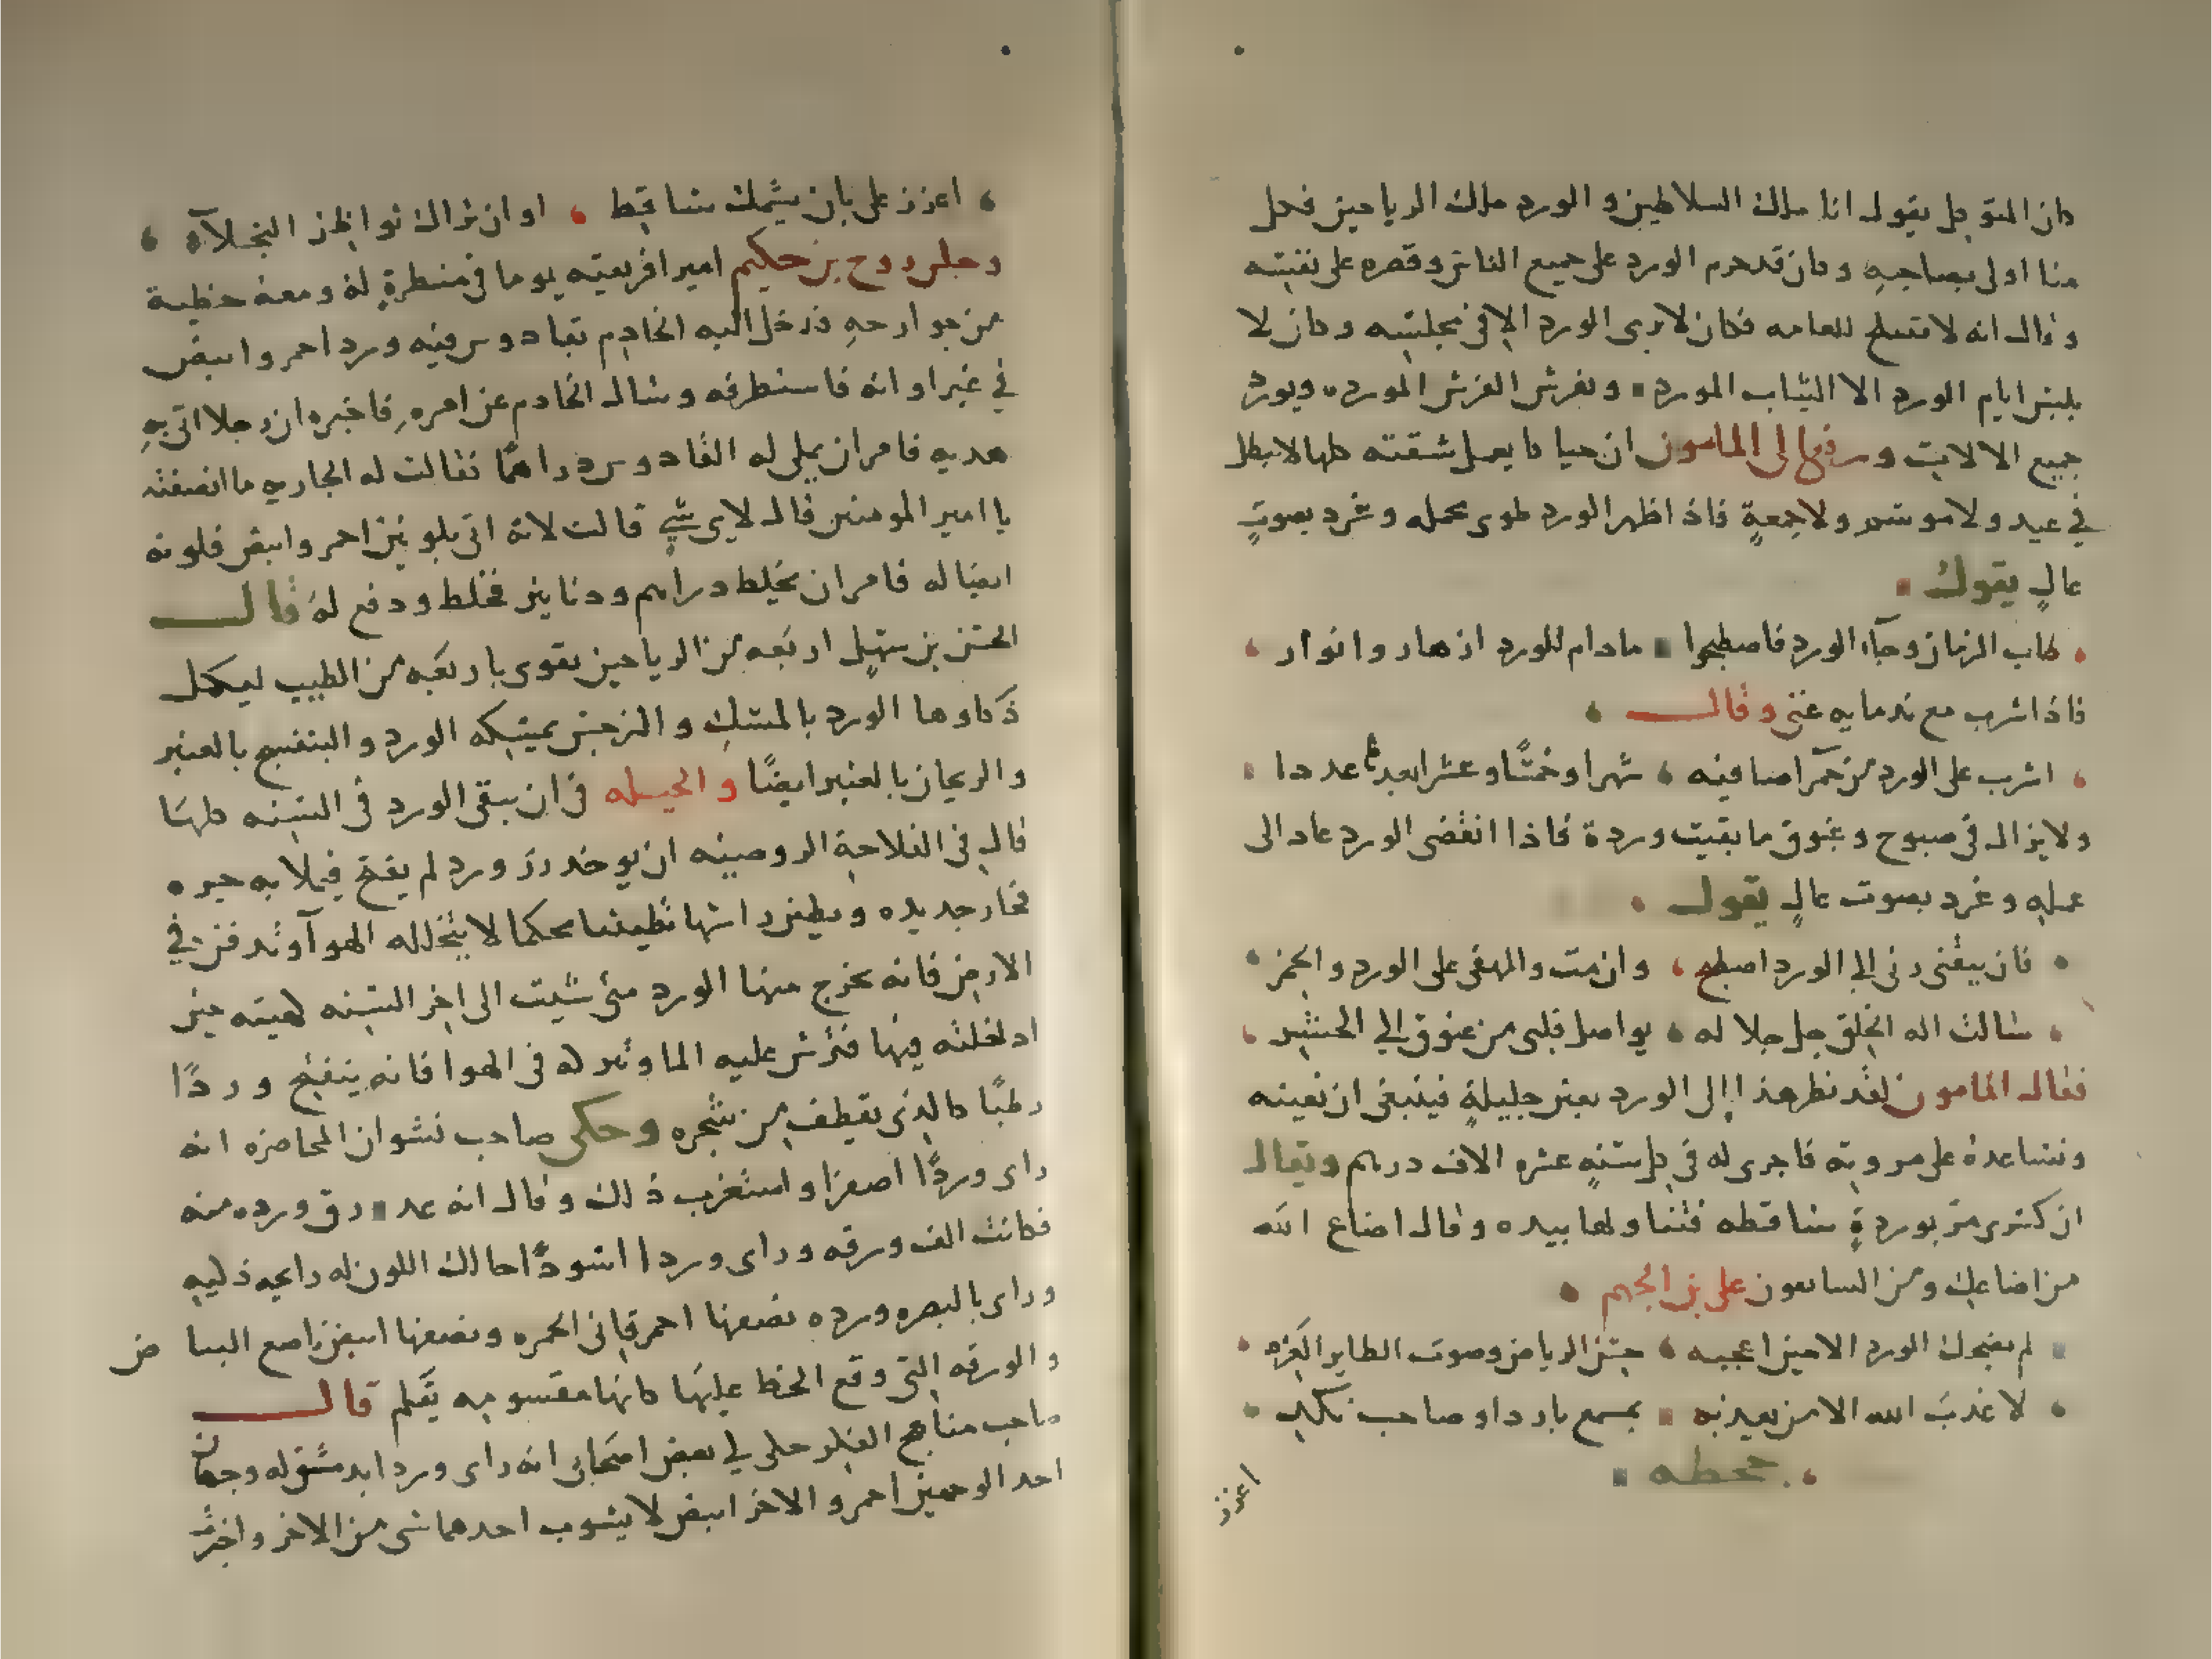 كان المتوكل يقول انا ملك السلاطين و الورد ملك الرياحين فكل
منا اولى بصاحبهِ وكان قد حرم الورد على جميع الناس وقصره على نفسه
وقال انه لا يصلح للعامه فكان لا يرى الورد الا فى مجلسه وكان لا
يلبس ايام الورد الا الثياب المورده ويفرش الفرش المورده ويورد
جميع الالات ورفع الى المامون ان حياكا يعمل سنته كلها لا يبطل
في عيد ولا موسم ولا جمعةٍ فاذا ظهر الورد طوى عمله وغرد بصوتٍ
عالٍ يقول
طاب الزمان وجآء الورد فاصطبحوا ما دام للورد ازهار وانوار
فاذا شرب مع ندمايه غنى وقال
اشرب على الورد من حمرآ صافيه شهرا وخمسًا وعشرا بعدها عددا
ولا يزال فى صبوح وغبوق ما بقيت وردة فاذا انقضى الورد عاد الى
عمله وغرد بصوت عالٍ يقول
فان يبقنى ربى الى الورد اصطبح وان مت والهفى على الورد والخمر
سالت اله الخلق جل جلاله يواصل قلبى من غبوق الى الحشر
فقال المامون لقد نظر هذا الى الورد بعين جليلةٍ فينبغى ان نعينه
ونساعدهُ على مروته فاجرى له فى كل سنةٍ عشره الاف درهم ويقال
ان كسرى مر بوردةٍ ساقطه فتناولها بيده وقال اضاع الله
من اضاعك ومن السابعون على بن الجهم
لم يضحك الورد الا حين اعجبه حسن الرياض وصوت الطاير الغرد
لا عذب الله الا من يعذبه بمسمع بارد او صاحب نكد
جحظه
اعزز
اعزز على بان يشمك ساقط او ان تراك نواظر البخلآء
وجلس روح بن حكيم امير افريقيه يوما فى منظرةٍ لهُ ومعهُ حظية
من جواريهِ فدخل اليه الخادم بقادوس فيه ورد احمر وابيض
في غير اوانه فاستطرفه وسال الخادم عن امره فاخبره ان رجلا اتى بهِ
هديه فامر ان يملى له القادوس دراهمًا فقالت له الجاريه ما انصفته
يا امير المومنين قال لاى شىٍ قالت لانهُ اتى بلونين احمر وابيض فلونه
ايضا له فامر ان يخلط دراهم ودنانير فخلط ودفع لهُ قال
الحسن بن سهل اربعه من الرياحين تقوى باربعه من الطيب ليكمل
ذكاوها الورد بالمسك و النرجس بميسكه الورد و البنفسج بالعنبر
والريحان بالعنبر ايضًا والحيله فى ان يبقى الورد فى السنه كلها
قال فى الفلاحة الروميه ان يوخذ زر ورد لم يفتح فيملا به جره
فخار جديده ويطين راسها تطيينا محكما لا يتخلله الهوآ وتدفن في
الارض فانه يخرج منها الورد متى شيت الى اخر السنه كهيته حين
ادخلته فيها فترش عليه الما وتتركه فى الهوا فانه ينفتح وردًا
رطبًا كالذى يقطف من شجره وحكى صاحب نشوان المحاضره انه
راى وردًا اصفرا واستغرب ذلك وقال انه عد ورق ورده منه
فكانت الف ورقه وراى وردا اسودًا حالك اللون له رايحه ذكيه
وراى بالبصره ورده نصفها احمر قانى الحمره ونصفها ابيض ناصع البيا ض
والورقه التى وقع الخط عليها كانها مقسومه بقلم قال
صاحب مناهج الفكر حكى لي بعض اصحابى انه راى وردا بدمشق له وجهان
احد الوجهين احمر والاخر ابيض لا يشوب احدهما شى من الاخر واخبر